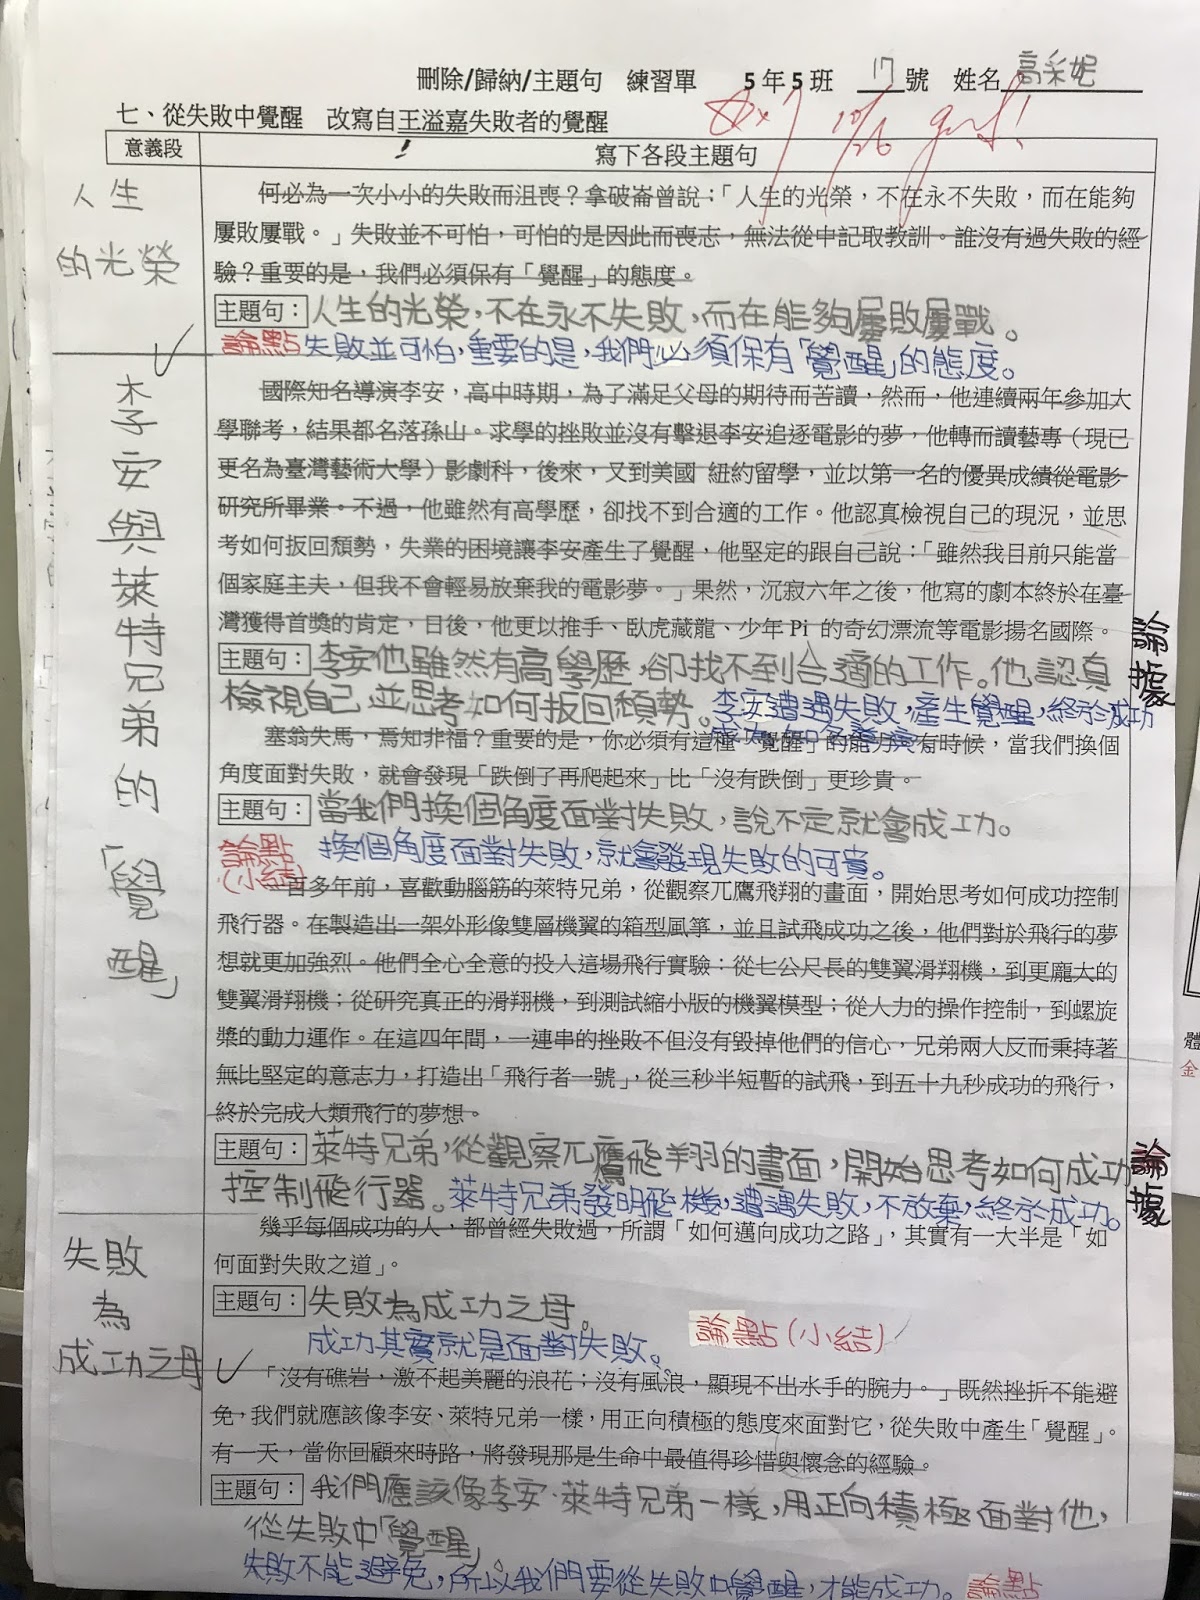 刪除/歸納/主題句 練習單 5年5班 17號 姓名高采妮
七、從失敗中覺醒 改寫自王溢嘉失敗者的覺醒
10/26 good!
意義段 寫下各段主題句
人生
的光榮
何必為一次小小的失敗而沮喪？拿破崙曾說：「人生的光榮，不在永不失敗，而在能夠
屢敗屢戰。」失敗並不可怕，可怕的是因此而喪志，無法從中記取教訓。誰沒有過失敗的經
驗？重要的是，我們必須保有「覺醒」的態度。
主題句：人生的光榮，不在永不失敗，而在能夠屢敗屢戰。
論點 失敗並可怕，重要的是，我們必須保有「覺醒」的態度。
李安與萊特兄弟的「覺醒」
國際知名導演李安，高中時期，為了滿足父母的期待而苦讀，然而，他連續兩年參加大
學聯考，結果都名落孫山。求學的挫敗並沒有擊退李安追逐電影的夢，他轉而讀藝專（現已
更名為臺灣藝術大學）影劇科，後來，又到美國 紐約留學，並以第一名的優異成績從電影
研究所畢業。不過，他雖然有高學歷，卻找不到合適的工作。他認真檢視自己的現況，並思
考如何扳回頹勢，失業的困境讓李安產生了覺醒，他堅定的跟自己說：「雖然我目前只能當
個家庭主夫，但我不會輕易放棄我的電影夢。」果然，沉寂六年之後，他寫的劇本終於在臺
灣獲得首獎的肯定，日後，他更以推手、臥虎藏龍、少年 Pi 的奇幻漂流等電影揚名國際。
論據
主題句：李安他雖然有高學歷，卻找不到合適的工作。他認真
檢視自己並思考如何扳回頹勢。李安遭遇失敗，產生覺醒，終於成功
塞翁失馬，焉知非福？重要的是，你必須有這種「覺醒」的能力。有時候，當我們換個
角度面對失敗，就會發現「跌倒了再爬起來」比「沒有跌倒」更珍貴。
主題句：當我們換個角度面對失敗，說不定就會成功。
論點(小結) 換個角度面對失敗，就會發現失敗的可貴。
一百多年前，喜歡動腦筋的萊特兄弟，從觀察兀鷹飛翔的畫面，開始思考如何成功控制
飛行器。在製造出一架外形像雙層機翼的箱型風箏，並且試飛成功之後，他們對於飛行的夢
想就更加強烈。他們全心全意的投入這場飛行實驗：從七公尺長的雙翼滑翔機，到更龐大的
雙翼滑翔機；從研究真正的滑翔機，到測試縮小版的機翼模型；從人力的操作控制，到螺旋
槳的動力運作。在這四年間，一連串的挫敗不但沒有毀掉他們的信心，兄弟兩人反而秉持著
無比堅定的意志力，打造出「飛行者一號」，從三秒半短暫的試飛，到五十九秒成功的飛行，
終於完成人類飛行的夢想。
主題句：萊特兄弟，從觀察兀鷹飛羽的畫面，開始思考如何成功
論據
控制飛行器。萊特兄弟發明飛機，遭遇失敗，不放棄，終於成功。
失敗
為
成功之母
幾乎每個成功的人，都曾經失敗過，所謂「如何邁向成功之路」，其實有一大半是「如
何面對失敗之道」。
主題句：失敗為成功之母。
成功其實就是面對失敗。 論點(小結)
「沒有礁岩，激不起美麗的浪花；沒有風浪，顯現不出水手的腕力。」既然挫折不能避
免，我們就應該像李安、萊特兄弟一樣，用正向積極的態度來面對它，從失敗中產生「覺醒」。
有一天，當你回顧來時路，將發現那是生命中最值得珍惜與懷念的經驗。
主題句：我們應該像李安、萊特兄弟一樣，用正向積極面對他，
從失敗中「覺醒」。
失敗不能避免，所以我們要從失敗中覺醒，才能成功。論點
體
金